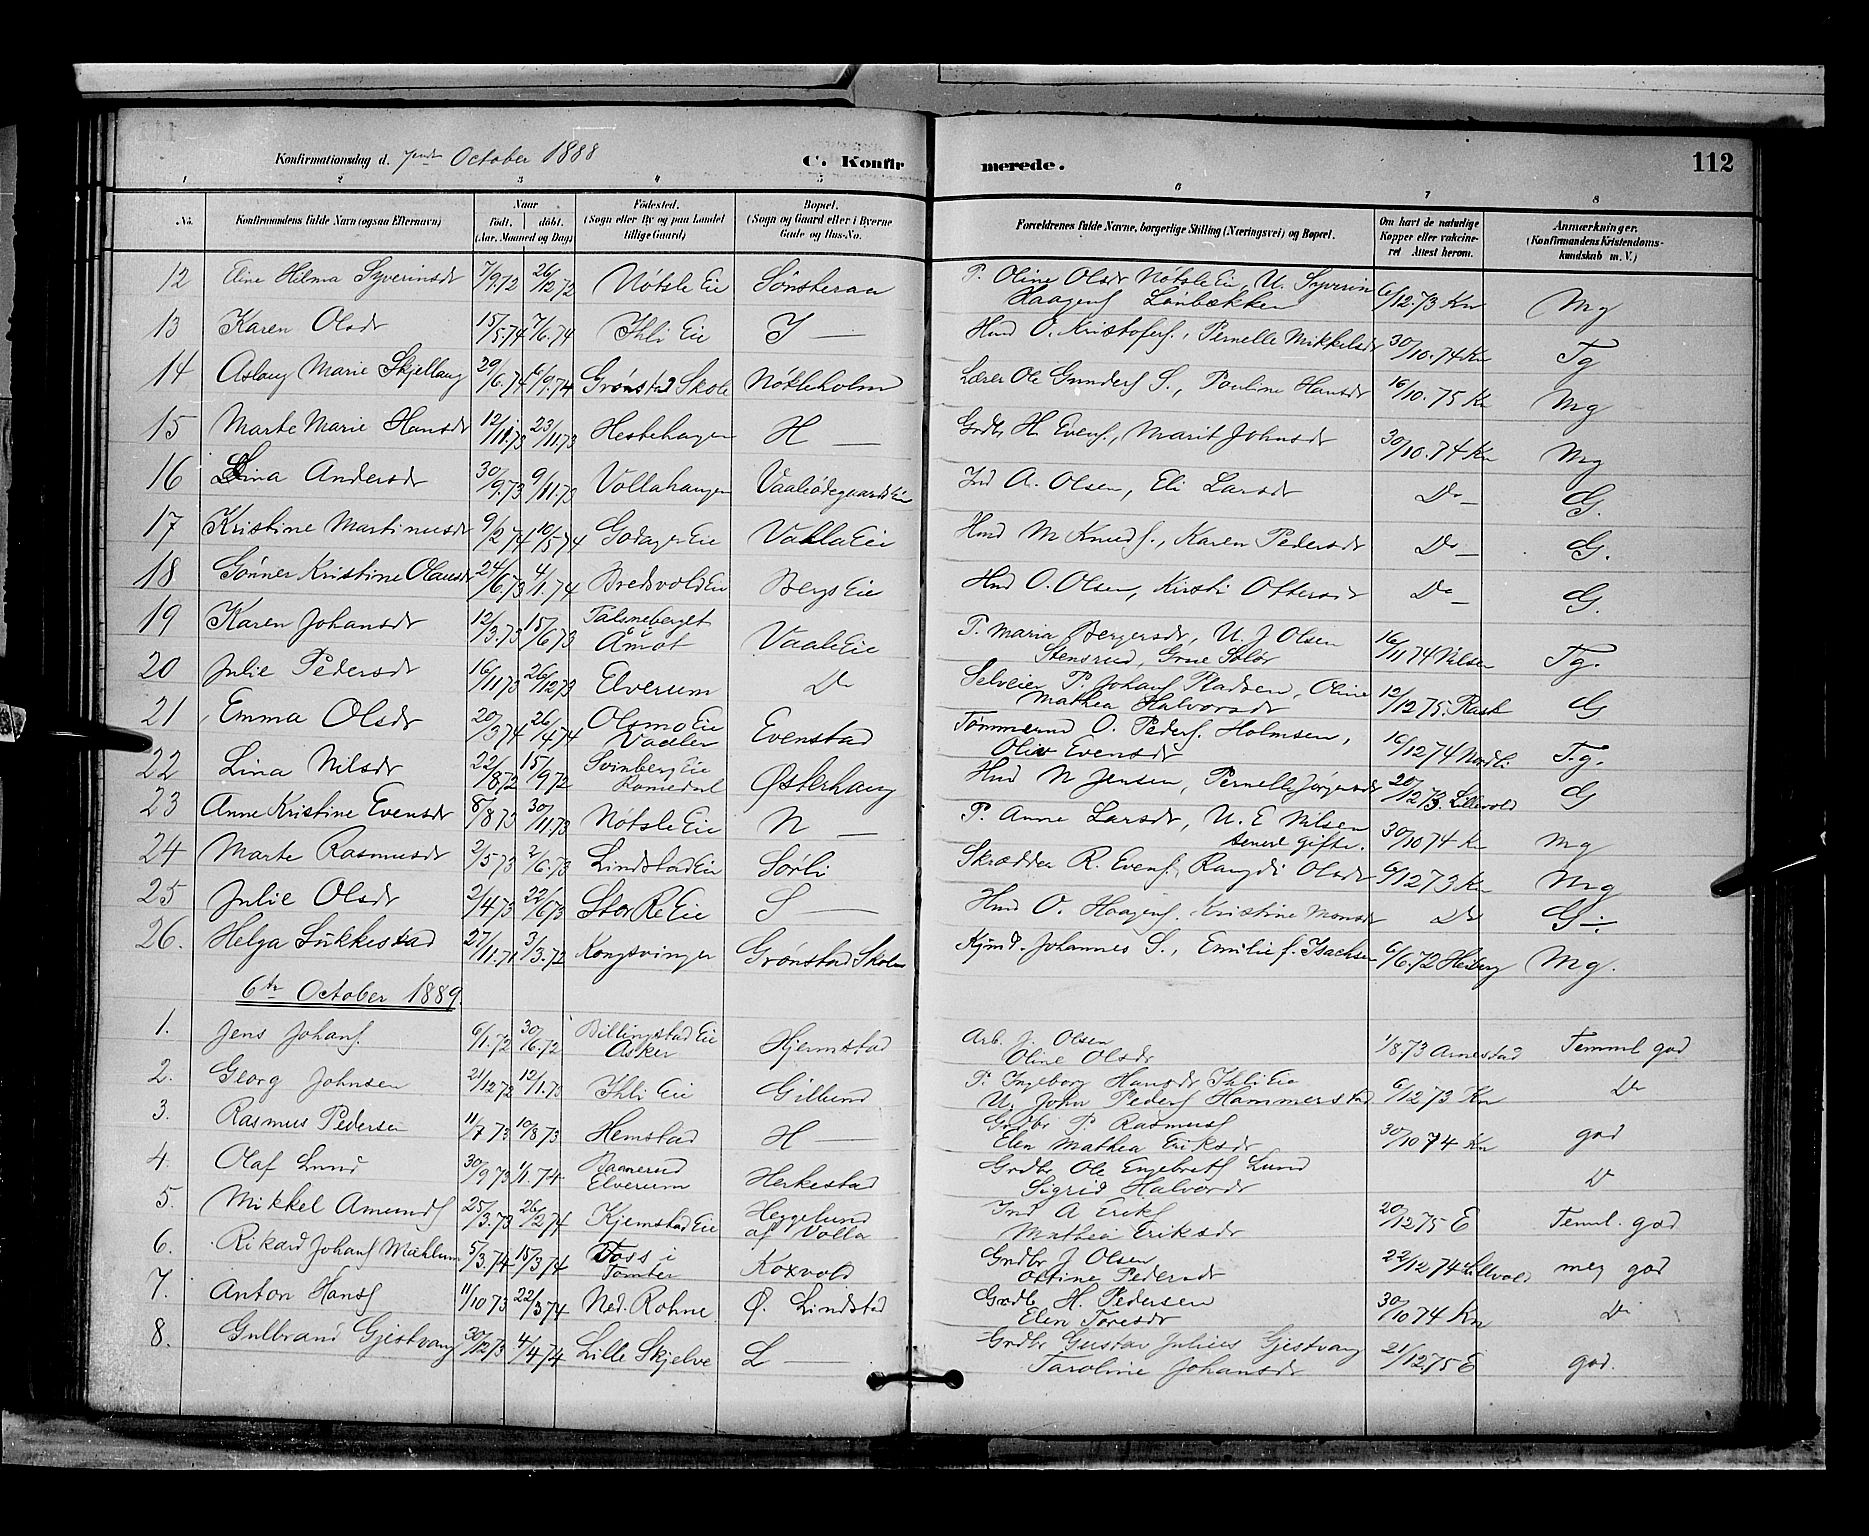 Konfirmationsdag d. 7nde October 1888 C. Konfir merede. 112
1 2 3 4 5 6 7 8
No. Konfirmandens fulde Navn (ogsaa Efternavn) Naar født, døbt. (Aar, Maaned og Dag) Fødested. (Sogn eller By og paa Landet tillige Gaard) Bopæl. (Sogn og Gaard eller i Byerne Gade og Hus-No. Forældrenes fulde Navne, borgerlige Stilling (Næringsvei) og Bopæl. Om havt de naturlige Kopper eller vakcineret Attest herom. Anmærkninger. (Konfirmandens Kristendomskundskab m. V.)
12 Eline Helma Syverinsdr 7/9 72 26/12 72 Nøtsle Eie Sønsteraa P. Oline Olsdr Nøtsle Eie, U. Syverin Haagens Lønbækken 6/12.73 Kn Mg
13 Karen Olsdr 15/5.74 7/6.74 Ihli Eie I — Hmd O. Kristofers., Pernelle Mikkelsdr 30/10.74 Kn Tg
14 Aslaug Marie Skjellaug 29/6.74 6/9.74 Grønstad Skole Nøkleholm Lærer Ole Gunders S., Pauline Hansdr 16/10.75 Kn Mg
15 Marte Marie Hansdr 12/11.73 23/11.73 Hestehagen H — Grdbr H. Evens., Marit Johnsdr 30/10.74 Kn Mg
16 Lina Andersdr 30/9.73 9/11.73 Vollahaugen Vaaleødegaards Eie Ind A. Olsen, Eli Larsdr Do — G.
17 Kristine Martinusdr 9/2 74 10/5 74 Godager Eie Valla Eie Hmd M Knuds., Karen Pedersdr Do — G.
18 Gønner Kristine Olausdr 24/6.73 4/1.74 Bredsvold Eie Bergs Eie Hmd O. Olsen, Kirsti Ottersdr Do — G.
19 Karen Johansdr 12/3.73 15/6 73 Talsneberget Åmot Vaale Eie P. Maria Bergersdr, U. J Olsen Stensrud, Grue Solør 16/11 74 Nilsen Tg.
20 Julie Pedersdr 16/11.73 26/12 73 Elverum Do Selveier P. Johans Pladsen, Oline Mathea Halvorsdr 12/12 75. Rask G
21 Emma Olsdr 20/3 74 26/4 74 Olsmo Eie Vaaler Evenstad Tømmermd O. Peders. Holmsen, Oliv Evensdr 16/12 74 Nordli T.g.
22 Lina Nilsdr 22/8 72 15/9 72 Svinberg Eie Romedal Østerhaug Hmd N Jensen, Pernelle Jørgensdr 20/12 73. Lillevold G
23 Anne Kristine Evensdr 8/8 73 30/11.73 Nøtsle Eie N — P. Anne Larsdr, U. E Nilsen senere gifte. 30/10 74 Kn Mg
24 Marte Rasmusdr 2/5 73 2/6.73 Lindstad Eie Sørli Skrædder R. Evens. Rangdi Olsdr 6/12 73 Kn Mg
25 Julie Olsdr 2/4 73 22/6 73 Stor Re Eie S — Hmd O. Haagens. Kristine Monsdr Do G
26. Helga Lükkestad 27/11.71 3/3.72 Kongsvinger Grønstad Skole Kjmd. Johannes S., Emilie f. Isachsen 6/6.72 Heiberg Mg.
6te October 1889
1. Jens Johans. 6/1.72 30/6.72 Billingstad Eie Asker Hjermstad Arb. J. Olsen Oline Olsdr 1/8.73 Arnestad Temml god
2. Georg Johnsen 21/12 72 12/1.73 Ihli Eie Gillund P. Ingeborg Hansdr Ihli Eie U. John Peders Hammerstad 6/12 73 Kn Do
3. Rasmus Pedersen 11/7 73 10/8 73 Hemstad H — Grdbr P Rasmuss Elen Mathea Eriksdr 30/10 74 Kn god
4. Olaf Lund 30/9 73 1/1.74 Baarerud Elverum Herkestad Grdbr Ole Engebrets Lund Sigrid Halvorsdr D
5. Mikkel Amunds 25/3.73 26/2 74 Kjemstad Eie Heggelund af Volla Ind A Eriks Mathea Eriksdr 20/12 75 E Teml. god
6. Rikard Johans Mæhlum 5/3.74 15/3 74 Foss i Tomter Koxvold Grdbr J. Olsen Oltine Pedersdr 22/12 74 Lillvold meg god
7. Anton Hans 11/10 73 22/3 74 Ned. Rohne Ø. Lindstad Grdbr H. Pedersen Elen Toresdr 30/10 74 Kn D
8. Gulbrand Gjestvang 30/12 73 4/4 74 Lille Skjelve L — Grdbr Gustav Julius Gjestvang Taroline Johansdr 21/12.75 E god.